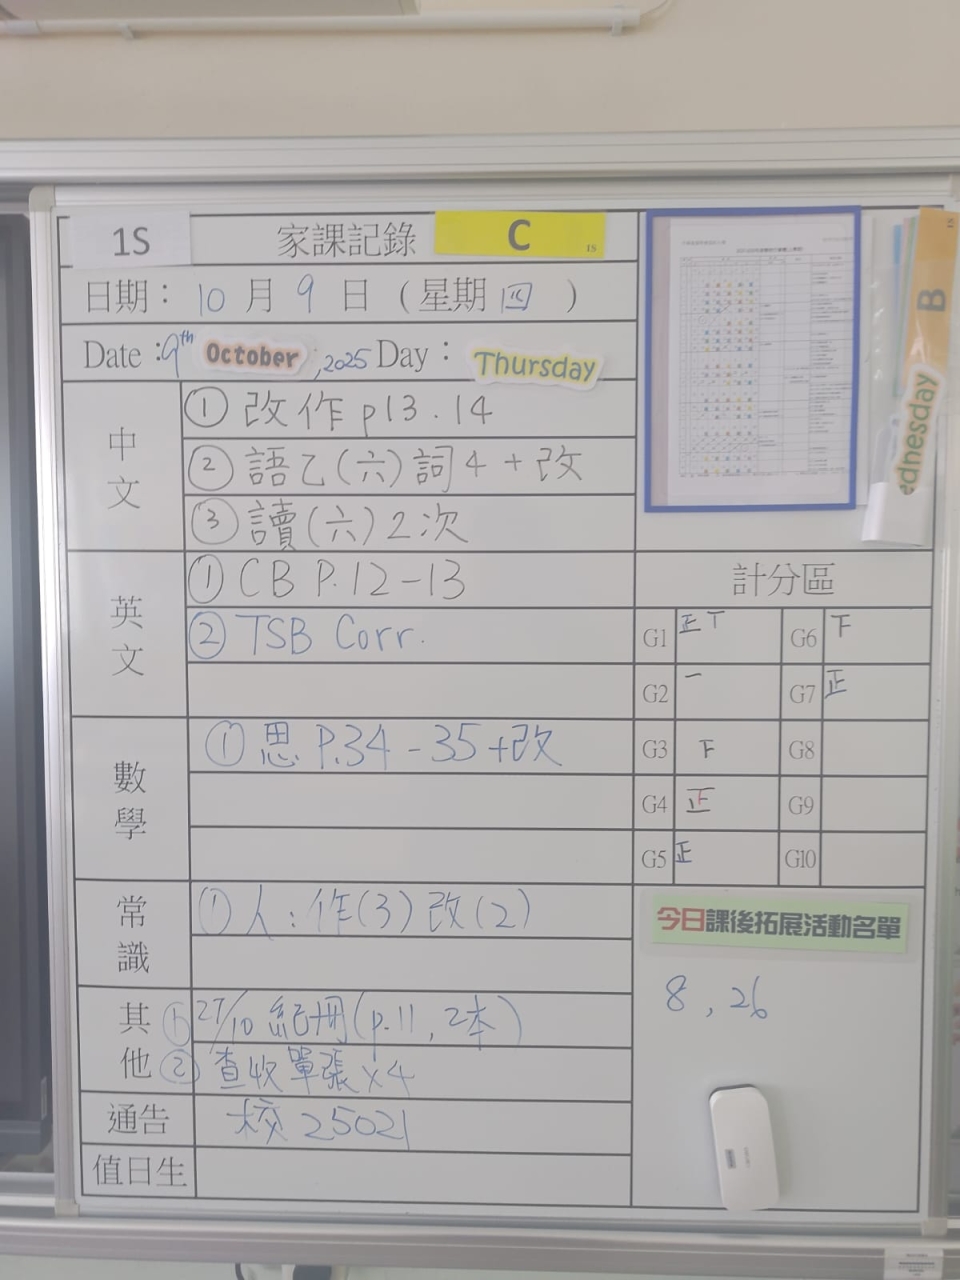 1S 家課記錄 C 1S
日期： 10 月 9 日 ( 星期 四 )
Date : 9th October , 2025 Day : Thursday
中文
① 改作 p13 . 14
② 語乙(六)詞4 + 改
③ 讀(六)2次
英文
① CB P.12-13
② TSB Corr.
數學
① 思 P.34 - 35 + 改
常識
① 人 : 作(3) 改(2)
其他
① 27/10 紀冊(p.11, 2本)
② 查收單張 x4
通告 校 25021
值日生
B
ednesday
計分區
G1 正丅 G6 下
G2 一 G7 正
G3 下 G8
G4 正 G9
G5 正 G10
今日課後拓展活動名單
8 , 26